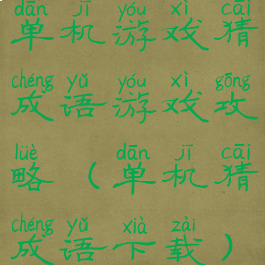 dān jī yóu xì cāi
单机游戏猜
chéng yǔ yóu xì gōng
成语游戏攻
lüè dān jī cāi
略（单机猜
chéng yǔ xià zài
成语下载）